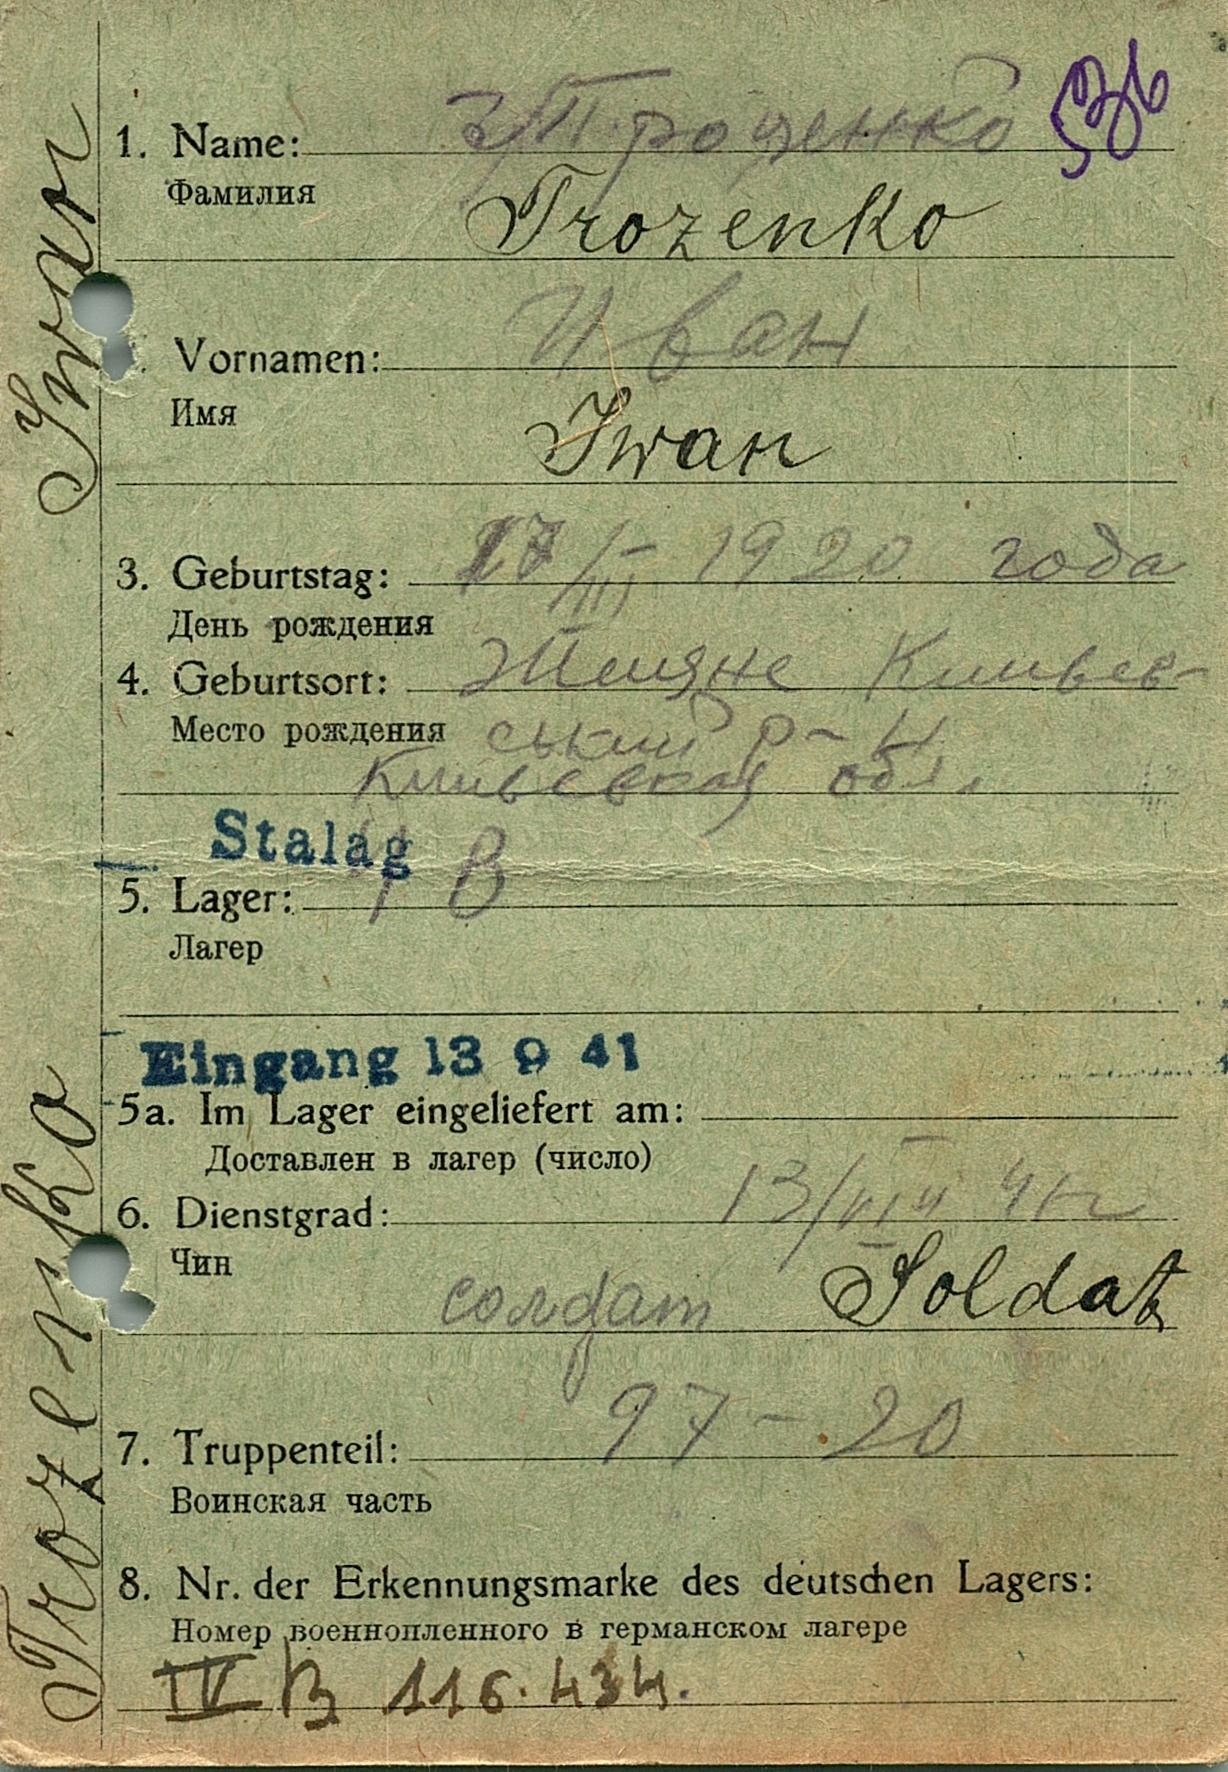 1. Name: Троценко
Фамилия
Trozenko
Vornamen: Иван
Имя
Iwan
3. Geburtstag: 17/III 1920 года
День рождения
4. Geburtsort: Киевев-
Место рождения ський р-н
обл.
Stalag
5. Lager: IV B
Лагер
Eingang 13 9 41
5a. Im Lager eingeliefert am:
Доставлен в лагер (число)
6. Dienstgrad: 13/VIII 41 г
Чин
солдат Soldat
7. Truppenteil: 97-20
Воинская часть
8. Nr. der Erkennungsmarke des deutschen Lagers:
Номер военнопленного в германском лагере
IV B 116.434.
Trozenko Iwan